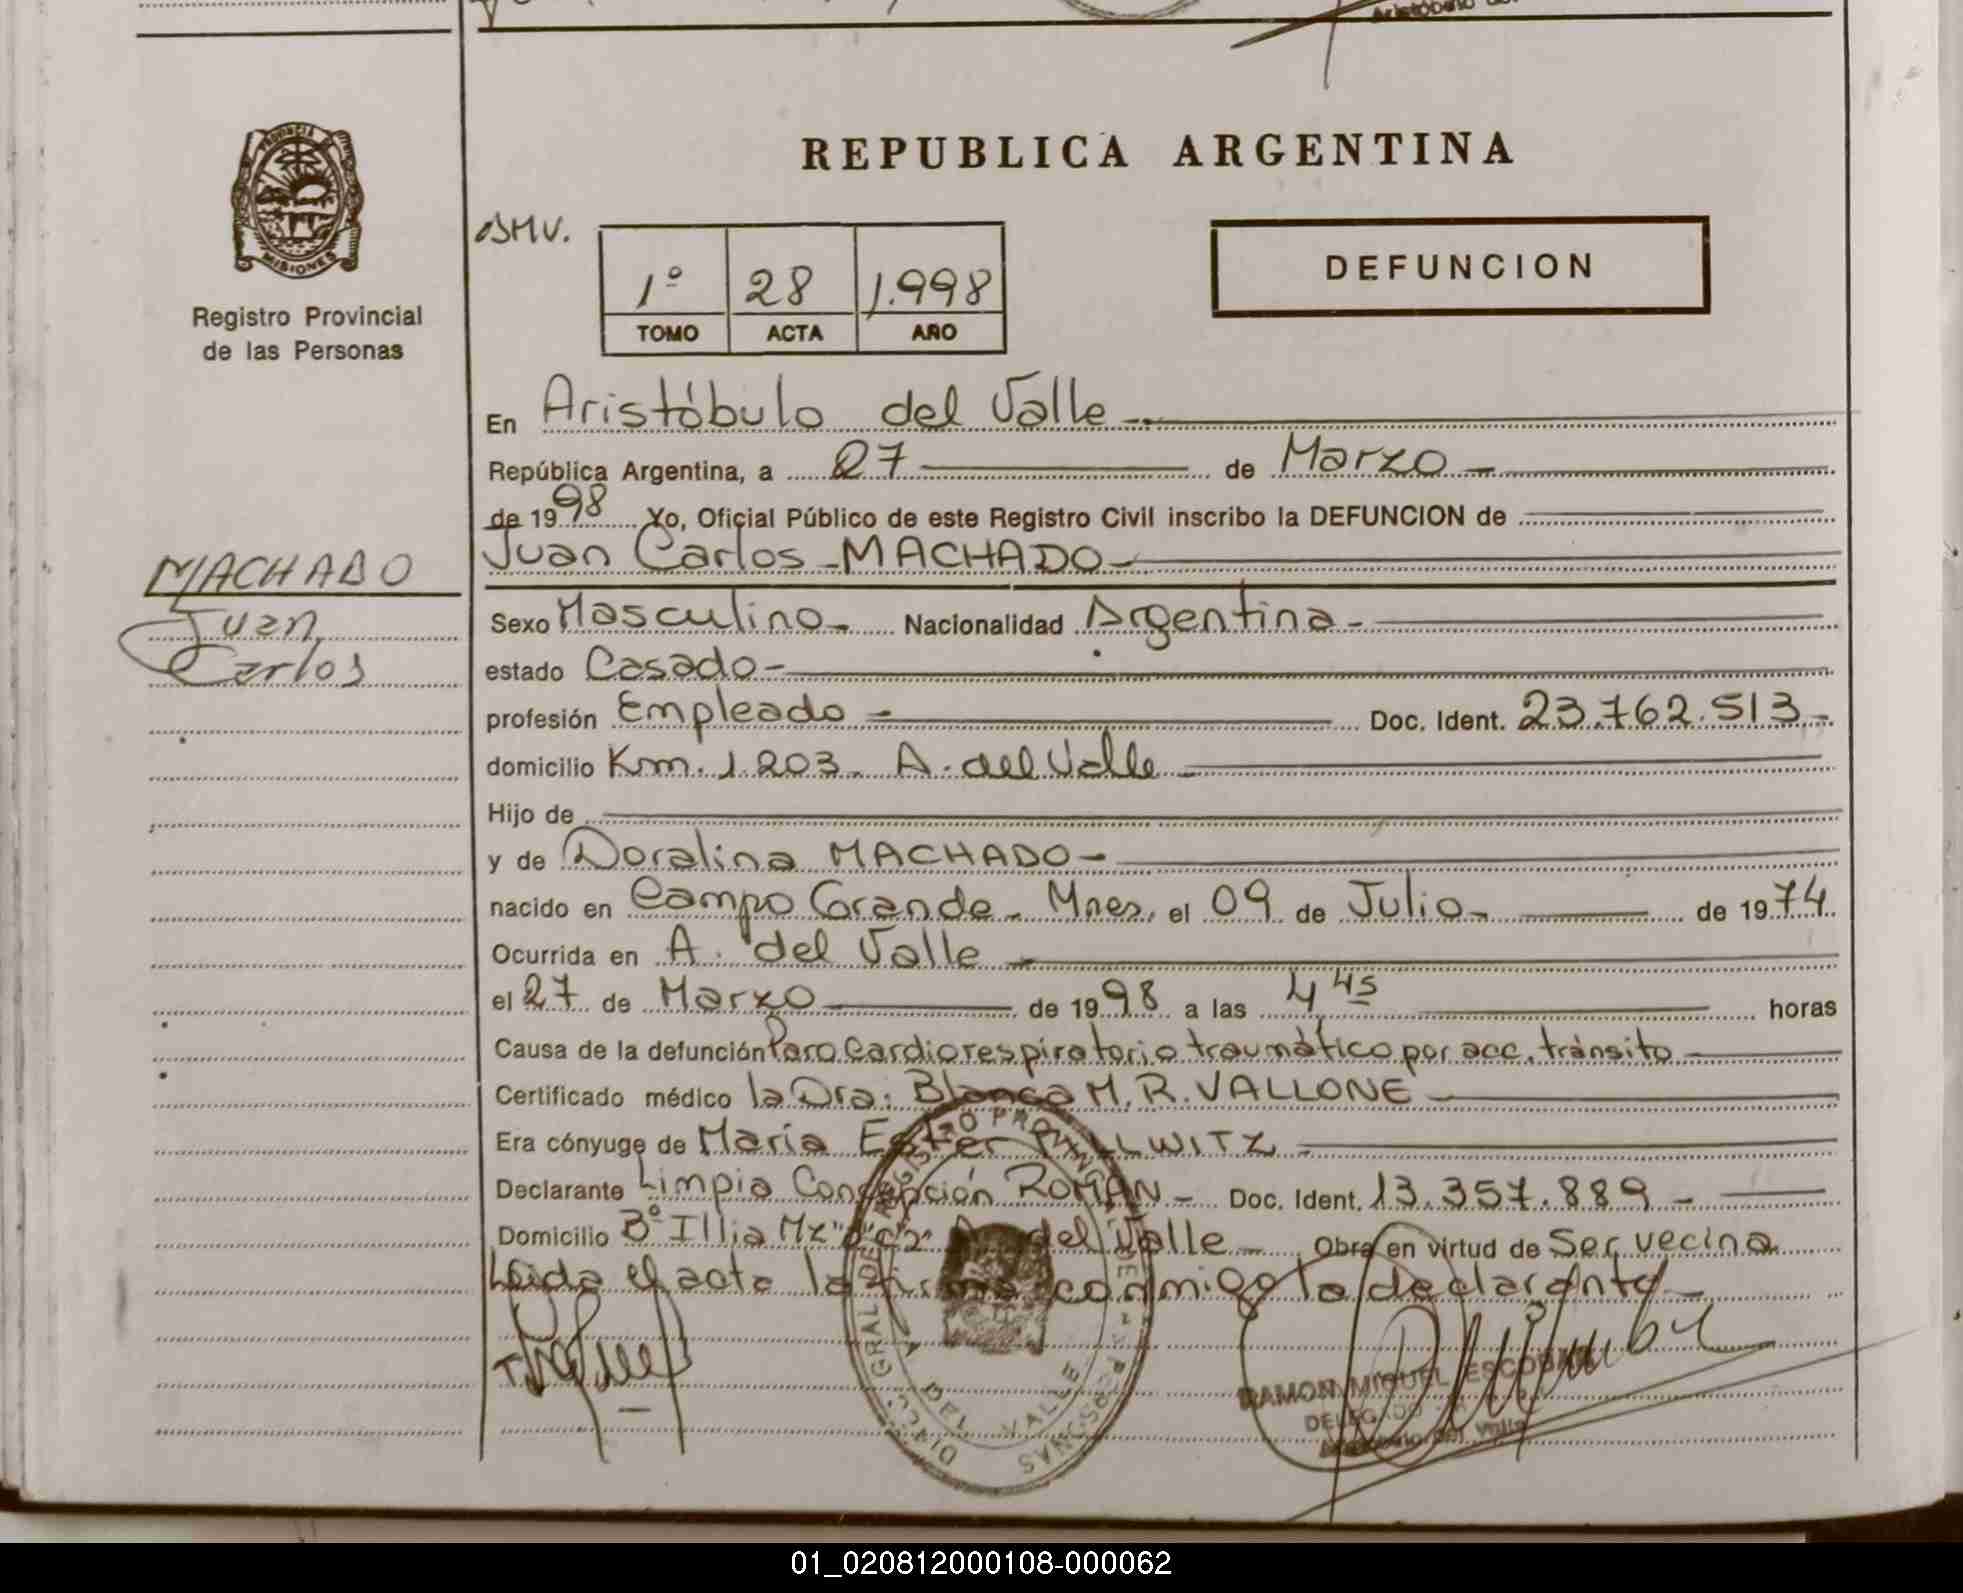 PROVINCIA DE
MISIONES
Registro Provincial
de las Personas
MACHADO
Juan
Carlos
REPUBLICA ARGENTINA
1º 28 1.998
TOMO ACTA AÑO
DEFUNCION
En Aristóbulo del Valle
República Argentina, a 27 de Marzo
de 1998 Yo, Oficial Público de este Registro Civil inscribo la DEFUNCION de
Juan Carlos MACHADO
Sexo Masculino Nacionalidad Argentina
estado Casado
profesión Empleado Doc. Ident. 23.762.513
domicilio Km. 1.203. A. del Valle
Hijo de
y de Doralina MACHADO
nacido en Campo Grande. Mnes. el 09 de Julio de 1974
Ocurrida en A. del Valle
el 27 de Marzo de 1998 a las 4 45 horas
Causa de la defunción Paro Cardiorespiratorio traumático por acc. tránsito
Certificado médico la Dra: Blanca M. R. VALLONE
Era cónyuge de María Ester
Declarante Limpia Concepción ROMAN Doc. Ident. 13.357.889
Domicilio Bº Illia Mz del Valle Obra en virtud de Ser vecina
Leida el acta la firma conmigo la declarante
RAMON MIGUEL ESCOBAR
DELEGADO
Aristóbulo del Valle
DIRECC. GRAL. DEL REGISTRO PROVINCIAL DE LAS PERSONAS
A. DEL VALLE
01_020812000108-000062